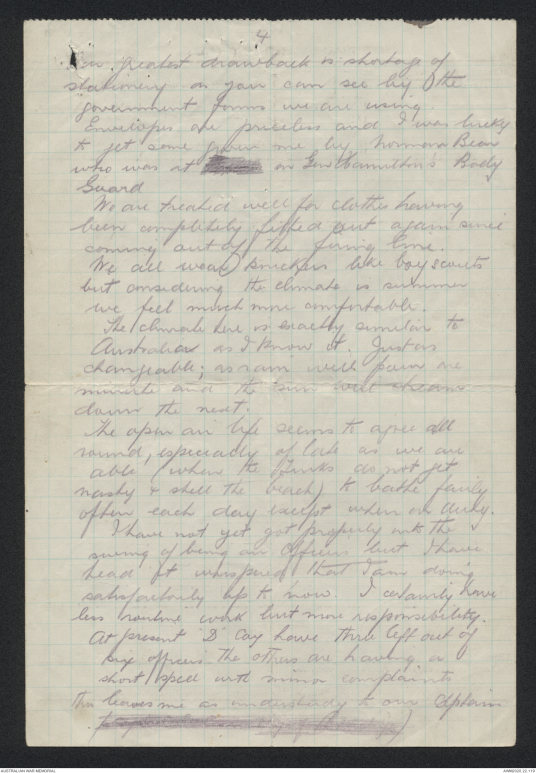 4
Our greatest drawback is shortage of
stationery as you can see by the
government forms we are using
Envelopes are priceless and I was lucky
to get some given me by Norman Bear
who was at on Gen Hamilton's Body
Guard
We are treated well for clothes having
been completely fitted out again since
coming out of the firing line.
We all wear knickers like boy scouts
but considering the climate is summer
we feel much more comfortable.
The climate here is exactly similar to
Australia as I know it. Just as
changeable; as rain will pour one
minute and the sun will stream
down the next.
The open air life seems to agree all
round, especially of late as we are
able (where the Turks do not get
nasty & shell the beach) to bathe fairly
often each day except when on duty.
I have not yet got properly into the
swing of being an officer but I have
heard it whispered that I am doing
satisfactorily up to now. I certainly have
less routine work but more responsibility.
At present "D" Coy have three left out of
six officers the others are having a
short spell with minor complaints
this leaves me as understudy to our Captain
AUSTRALIAN WAR MEMORIAL